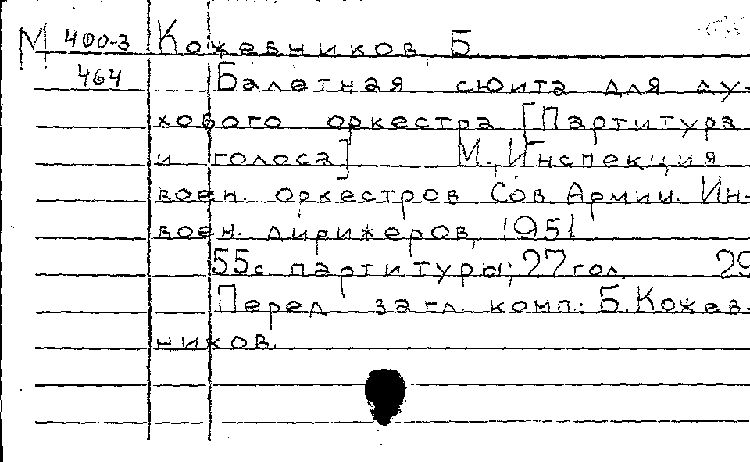 М 400-3 Кожевников, Б.
464 Балетная сюита для ду-
хового оркестра [Партитура
и голоса] М., Инспекция
воен. оркестров Сов. Армии. Ин-
воен. дирижеров, 1951
55с партитуры; 27 гол. 29
Перед загл. комп.: Б. Кожев
ников.